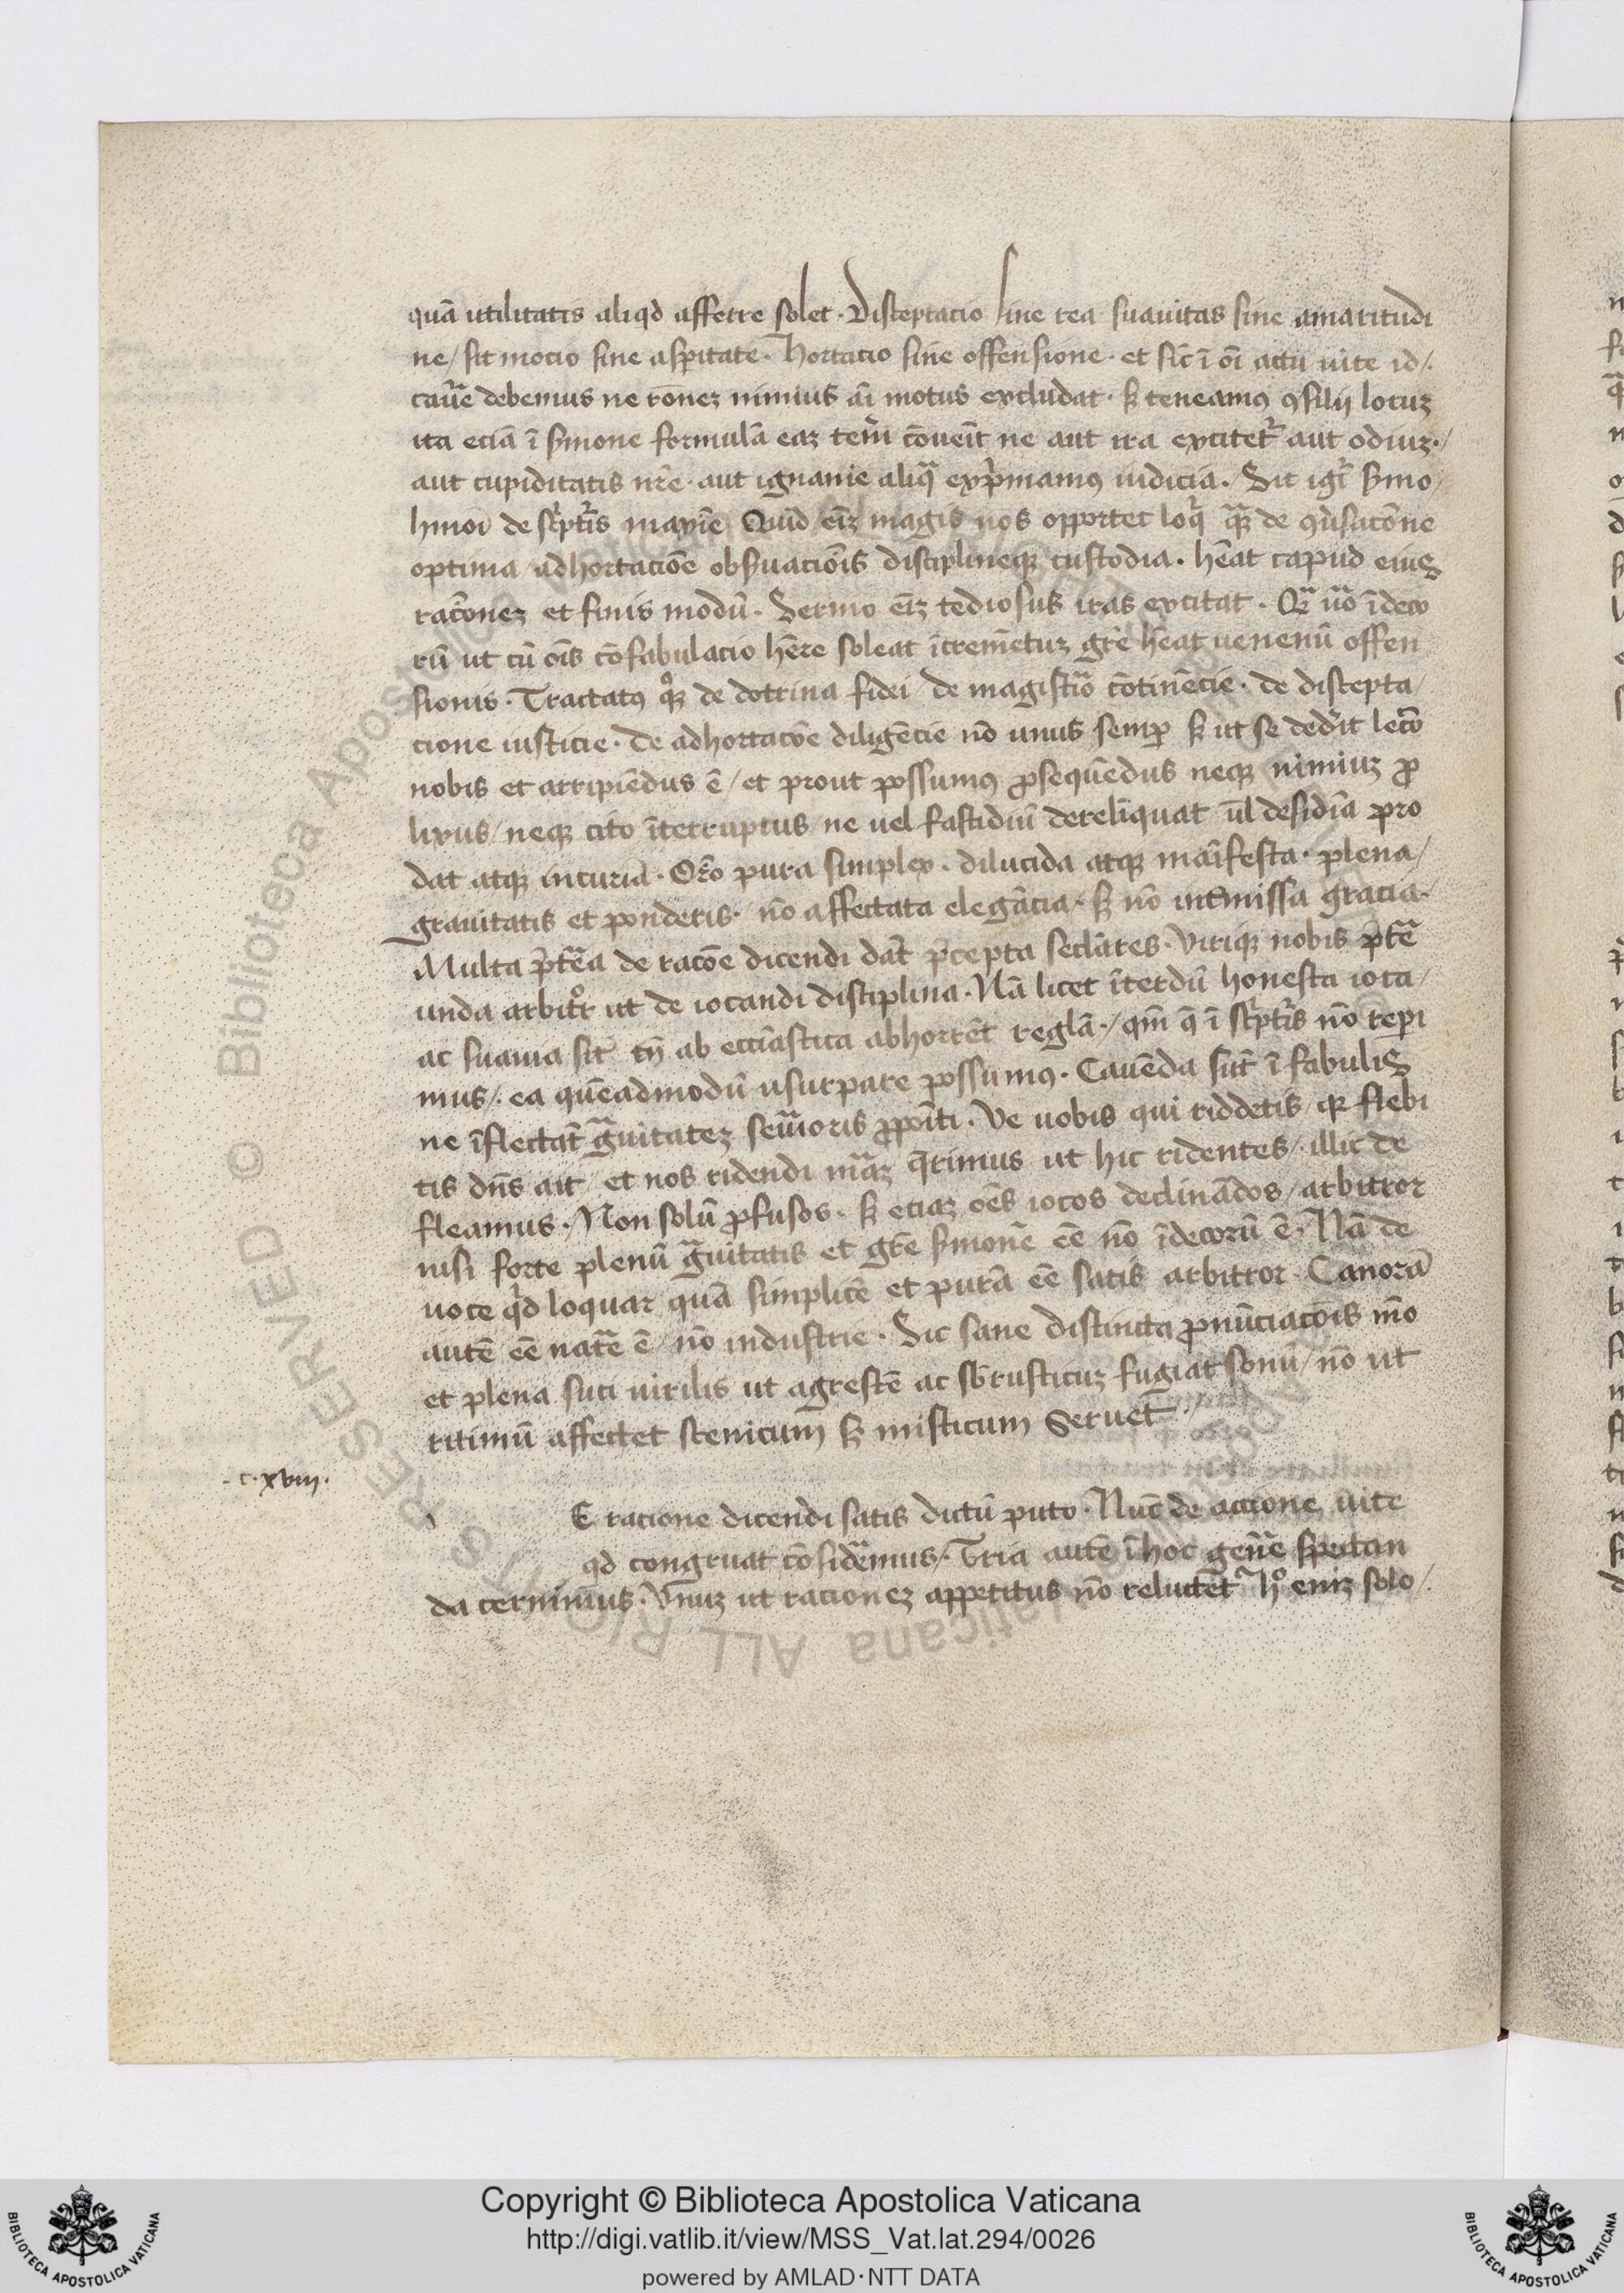 quā utilitatis aliqd afferre solet · Disceptacio sine rea suauitas sine amaritudi
ne / sit mocio sine asp̄itate · Hortacio sine offensione · et sic̄ ī oī actu uite id /.
cau̅e debemus ne rōneꝫ nimius aī motus excludat · sꝫ teneamꝰ ꝯsilij locuꝫ
ita eciā ī s̄mone formulā eaꝫ tem̄ cōueīt ne aut ira excitet᷑ aut odiuꝫ · /
aut cupiditatis nr̄e · aut ignauie aliq̄ exp̄mamꝰ iudicia . Sit igr̄ s̄mo /
hm̄oi de sc̄ptr̄is maxīe Quid eīꝫ magis nos opportet loq̄ qᷓꝫ de ꝯu̅sacōne
optima adhortaciōe obs̄uaciōis disciplineqꝫ custodia . hēat capud eius
racōneꝫ et finis modū . Sermo eīꝫ tediosus iras excitat . Qᷓ uͦo īdeco
rū ut cū oīs cōfabulacio hēre soleat īcremētuꝫ gr̄e hēat uenenū offen
sionis . Tractatꝰ qͦꝫ de dotrina fidei / de magistͥo cōtinēcie · de discepta /
cione iusticie · de adhortacōe diligēcie nō unus semꝑ sꝫ ut se dedͥit lec̄o
nobis et arripiēdus ē / et prout possumꝰ ꝓsequēdus neqꝫ nimiuꝫ ꝓ
lixus / neqꝫ cito īterruptus / ne uel fastidiū derelīquat ul̄ desidīa pro
dat atqꝫ incuriā . Or̄o pura simplex . dilucida atqꝫ maīfesta · plena /
grauitatis et ponderis · nō affectata elegācia · sꝫ nō intͥmissa gracia .
Multa p̄tᷓea de racōe dicendi dāt p̄cepta seclāres . Viriqꝫ nobis p̄tᷓe
unda arbitͦr ut de iocandi disciplina . Nā licet īterdū honesta ioca /
ac suauia sit tn̄ ab ecclīastica abhorrēt reglā . / qm̄ q̄ ī sc̄ptr̄is nō reꝑi
mus / . ea quēadmodū usurpare possumꝰ . Cauēda sūt ī fabulis
ne īflectāt gᷓuitateꝫ seuͥioris ꝓpoīti . Ve uobis qui riddetis / qꝛ flebi
tis dn̄s ait / et nos ridendi mᷓaꝫ q̄rimus ut hic ridentes / . illic de
fleamus . / Non solū ꝓfusos . sꝫ etiaꝫ oēs iocos declinādos / arbitror
nisi forte plenū gᷓuitatis et gr̄e s̄monē ēe nō īdecorū ē . Nā de
uoce qͥd loquar quā simplicē et purā ēe satis arbitror . Canorā
autē ēe natᷓe ē / nō industrie . Sic sane distincta ꝓnūciacōis mͦo
et plena suci uirilis ut agrestē ac sb̄rusticuꝫ fugiat sonū / nō ut
ritimū affectet scenicum sꝫ misticum seruet . /
c · xviii ·
E racione dicendi satis dictū puto · Nūc de accione uite
qd congruat cōsidᷓemus / . Tria autē ī hoc gen̄e spectan
da cernimus . Vnuꝫ ut racioneꝫ appetitus nō reluctet᷑ hͦ eniꝫ solo / .
Copyright © Biblioteca Apostolica Vaticana
http://digi.vatlib.it/view/MSS_Vat.lat.294/0026
powered by AMLAD·NTT DATA